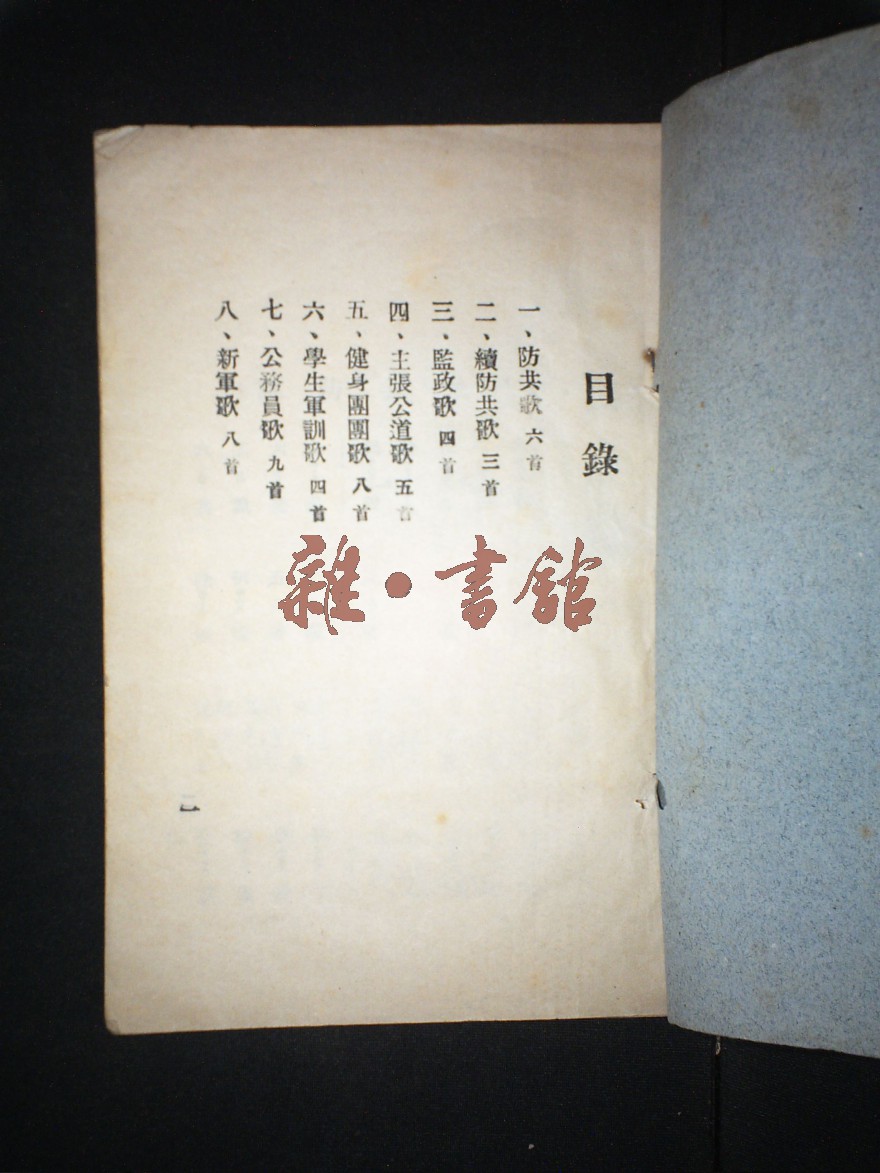 目錄
一、防共歌 六首
二、續防共歌 三首
三、監政歌 四首
四、主張公道歌 五首
五、健身團團歌 八首
六、學生軍訓歌 四首
七、公務員歌 九首
八、新軍歌 八首
一
雜·書館